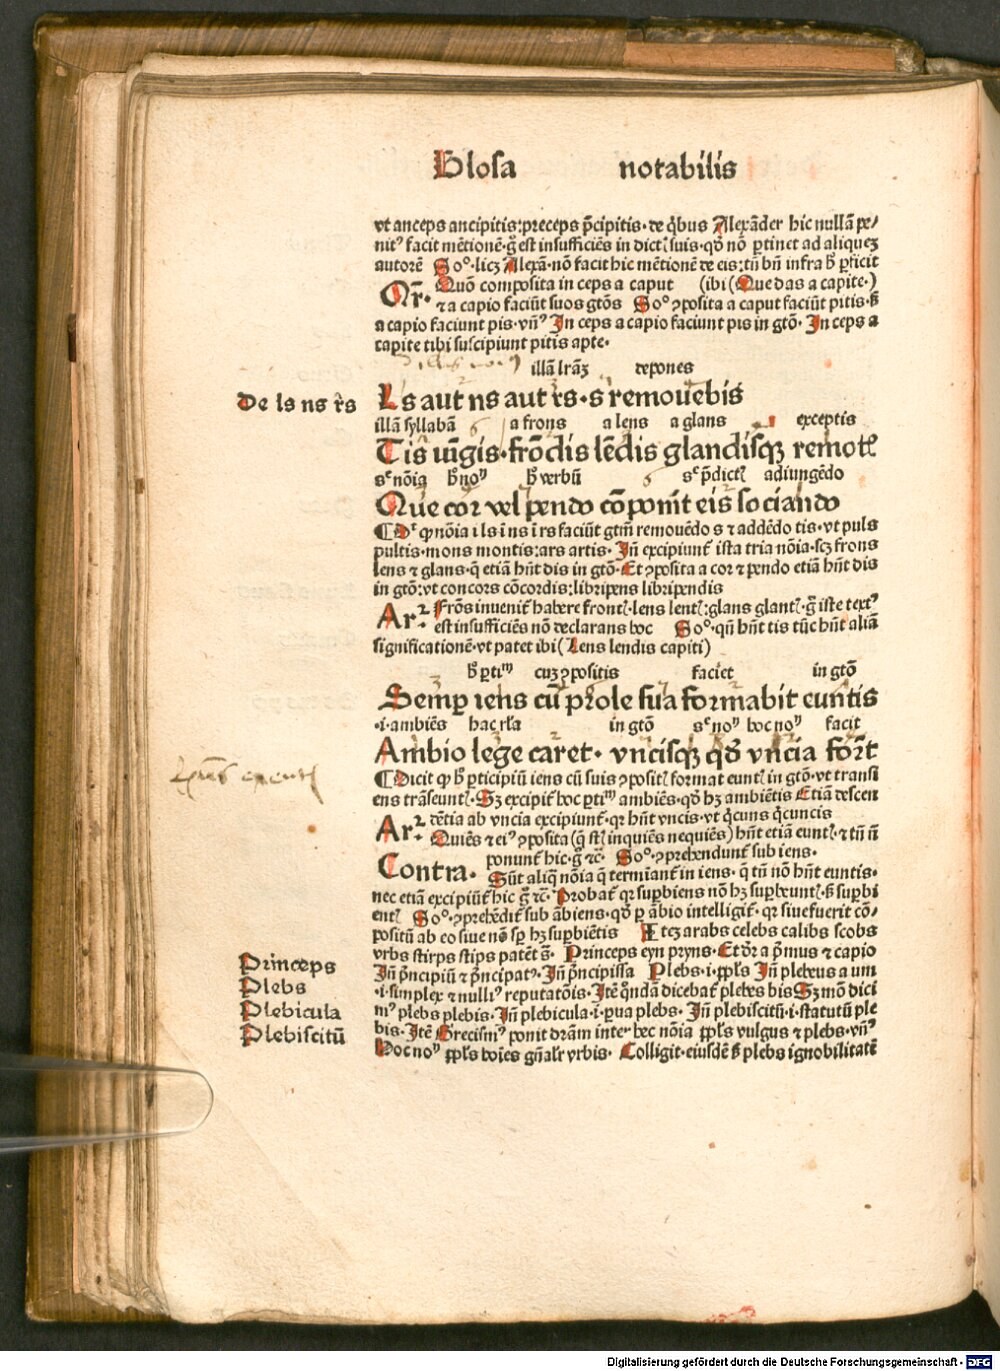 Glosa notabilis
vt anceps ancipitis:preceps p̄cipitis· de q̇bus Alexāder hic nullā pe/
nitꝰ facit mētionē·g̊ est insufficiēs in dictꝭ suis·qd̓ nō ꝑtinet ad aliquez
autorē So°·licꝫ Alexā·nō facit hic mētionē de eis:tn̄ bn̄ infra ħ ꝑficit
Nr̄· Quō composita in ceps a caput (ibi(Quedas a capite·)
⁊ a capio faciūt suos gtōs So° ꝯposita a caput faciūt pitis·ß
a capio faciunt pis·vn̄ꝰ In ceps a capio faciunt pis in gtō· In ceps a
capite tibi suscipiunt pitis apte·
illā lrāꝫ depones
De ls ns rs
Ls aut ns aut rs·s remouebis
illā syllabā a frons a lens a glans exceptis
Tis iūgis·frōdis lēdis glandisqꝫ remotꝭ
sᶜ nōia verbū sᶜ p̄dictꝭ adiungēdo
Que cor vel pendo cōponūt eis sociando
¶ Dᶜ ꝙ nōia i ls i ns i rs faciūt gtm̄ remouēdo s ⁊ addēdo tis·vt puls
pultis·mons montis:ars artis· In̄ excipiunt̉ ista tria nōia·scꝫ frons
lens ⁊ glans·q̄ etiā hn̄t dis in gtō· Et ꝯposita a cor ⁊ pendo etiā hn̄t dis
in gtō:vt concors cōcordis:libripens libripendis
Ar²· Frōs inuenit̉ habere frontꝭ·lens lentꝭ:glans glantꝭ·g̊ iste textꝰ
est insufficiēs nō declarans hoc So°·qn̄ hn̄t tis tūc hn̄t aliā
significationē·vt patet ibi(Lens lendis capiti)
ħ ptiᵐ cuꝫ ꝯpositis faciet in gtō
Semꝑ iens cū prole sua formabit euntis
·i·ambiēs hac rl̄a in gtō sᶜ noᵛ hoc noᵛ facit
Ambio lege caret· vncisqꝫ qd̓ vncia form̄t
¶ Dicit ꝙ ħ ꝑticipiū iens cū suis ꝯpositꝭ format euntꝭ in gtō·vt transi
ens trāseuntꝭ· Sꝫ excipit̉ hoc ꝑtiᵐ ambiēs·qd̓ hꝫ ambiētis Etiā descen
Ar²· dētia ab vncia excipiunt̉·qꝛ hn̄t vncis·vt q̇cuns q̇cuncis
Quiēs ⁊ eiꝰ ꝯposita (q̄ st̄ inquiēs nequiēs) hn̄t etiā euntꝭ·⁊ tn̄ n̄
ponunt̉ hic·g̊ ⁊c· So°·ꝯprehendunt̉ sub iens·
Contra· Sūt aliq̄ nōia q̄ termīant̉ in iens· q̄ tn̄ nō hn̄t euntis·
nec etiā excipiūt̉ hic g̊ ⁊c· Probat̉ qꝛ suꝑbiens nō hꝫ suꝑbeuntꝭ·ß suꝑbi
entꝭ So°·ꝯprehēdit̉ sub ābiens·qd̓ ꝑ ābio intelligit̉· qꝛ siue fuerit cō/
positū ab eo siue nō sꝑ hꝫ suꝑbiētis Et eꝫ arabs celebs calibs scobs
vrbs stirps stips patēt ē· Princeps eyn pryns· Et dr̄ a p̄mus ⁊ capio
Princeps
In̄ p̄ncipiū ⁊ p̄ncipatꝰ· In̄ p̄ncipissa Plebs·i·ppl̄s In̄ plebeus a um
Plebs
·i·simplex ⁊ nulliꝰ reputatōis· Itē q̄ndā dicebat̉ plebes bis Sꝫ mō dici
Plebicula
mꝰ plebs plebis· In̄ plebicula·i·ꝑua plebs· In̄ plebiscitū·i·statutū ple
Plebiscitū
bis· Itē Grecismꝰ ponit dr̄am inter hec nōia ppl̄s vulgus ⁊ plebs·vn̄ꝰ
Hoc noᵛ ppl̄s hoīes gn̄alr̄ vrbis· Colligit·eiusdē ß plebs ignobilitatē
Digitalisierung gefördert durch die Deutsche Forschungsgemeinschaft - DFG